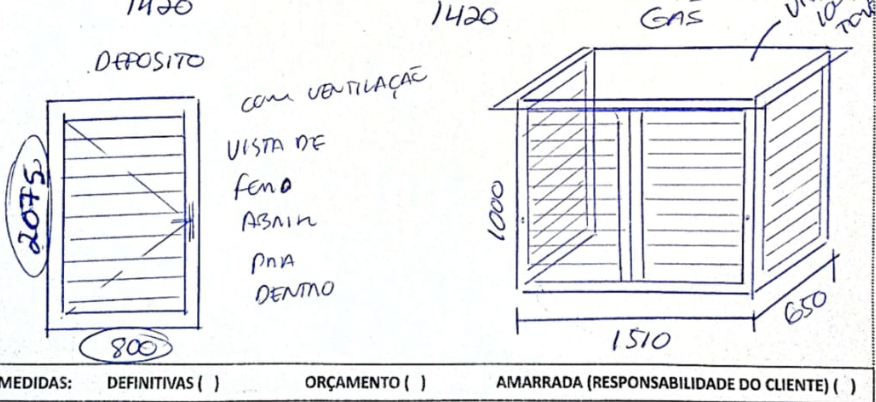 1420
1420
GÁS
DEPOSITO
COM VENTILAÇÃO
VISTA DE
FORA
ABRIR
PRA
DENTRO
2075
800
1000
1510
650
MEDIDAS: DEFINITIVAS ( ) ORÇAMENTO ( ) AMARRADA (RESPONSABILIDADE DO CLIENTE) ( )